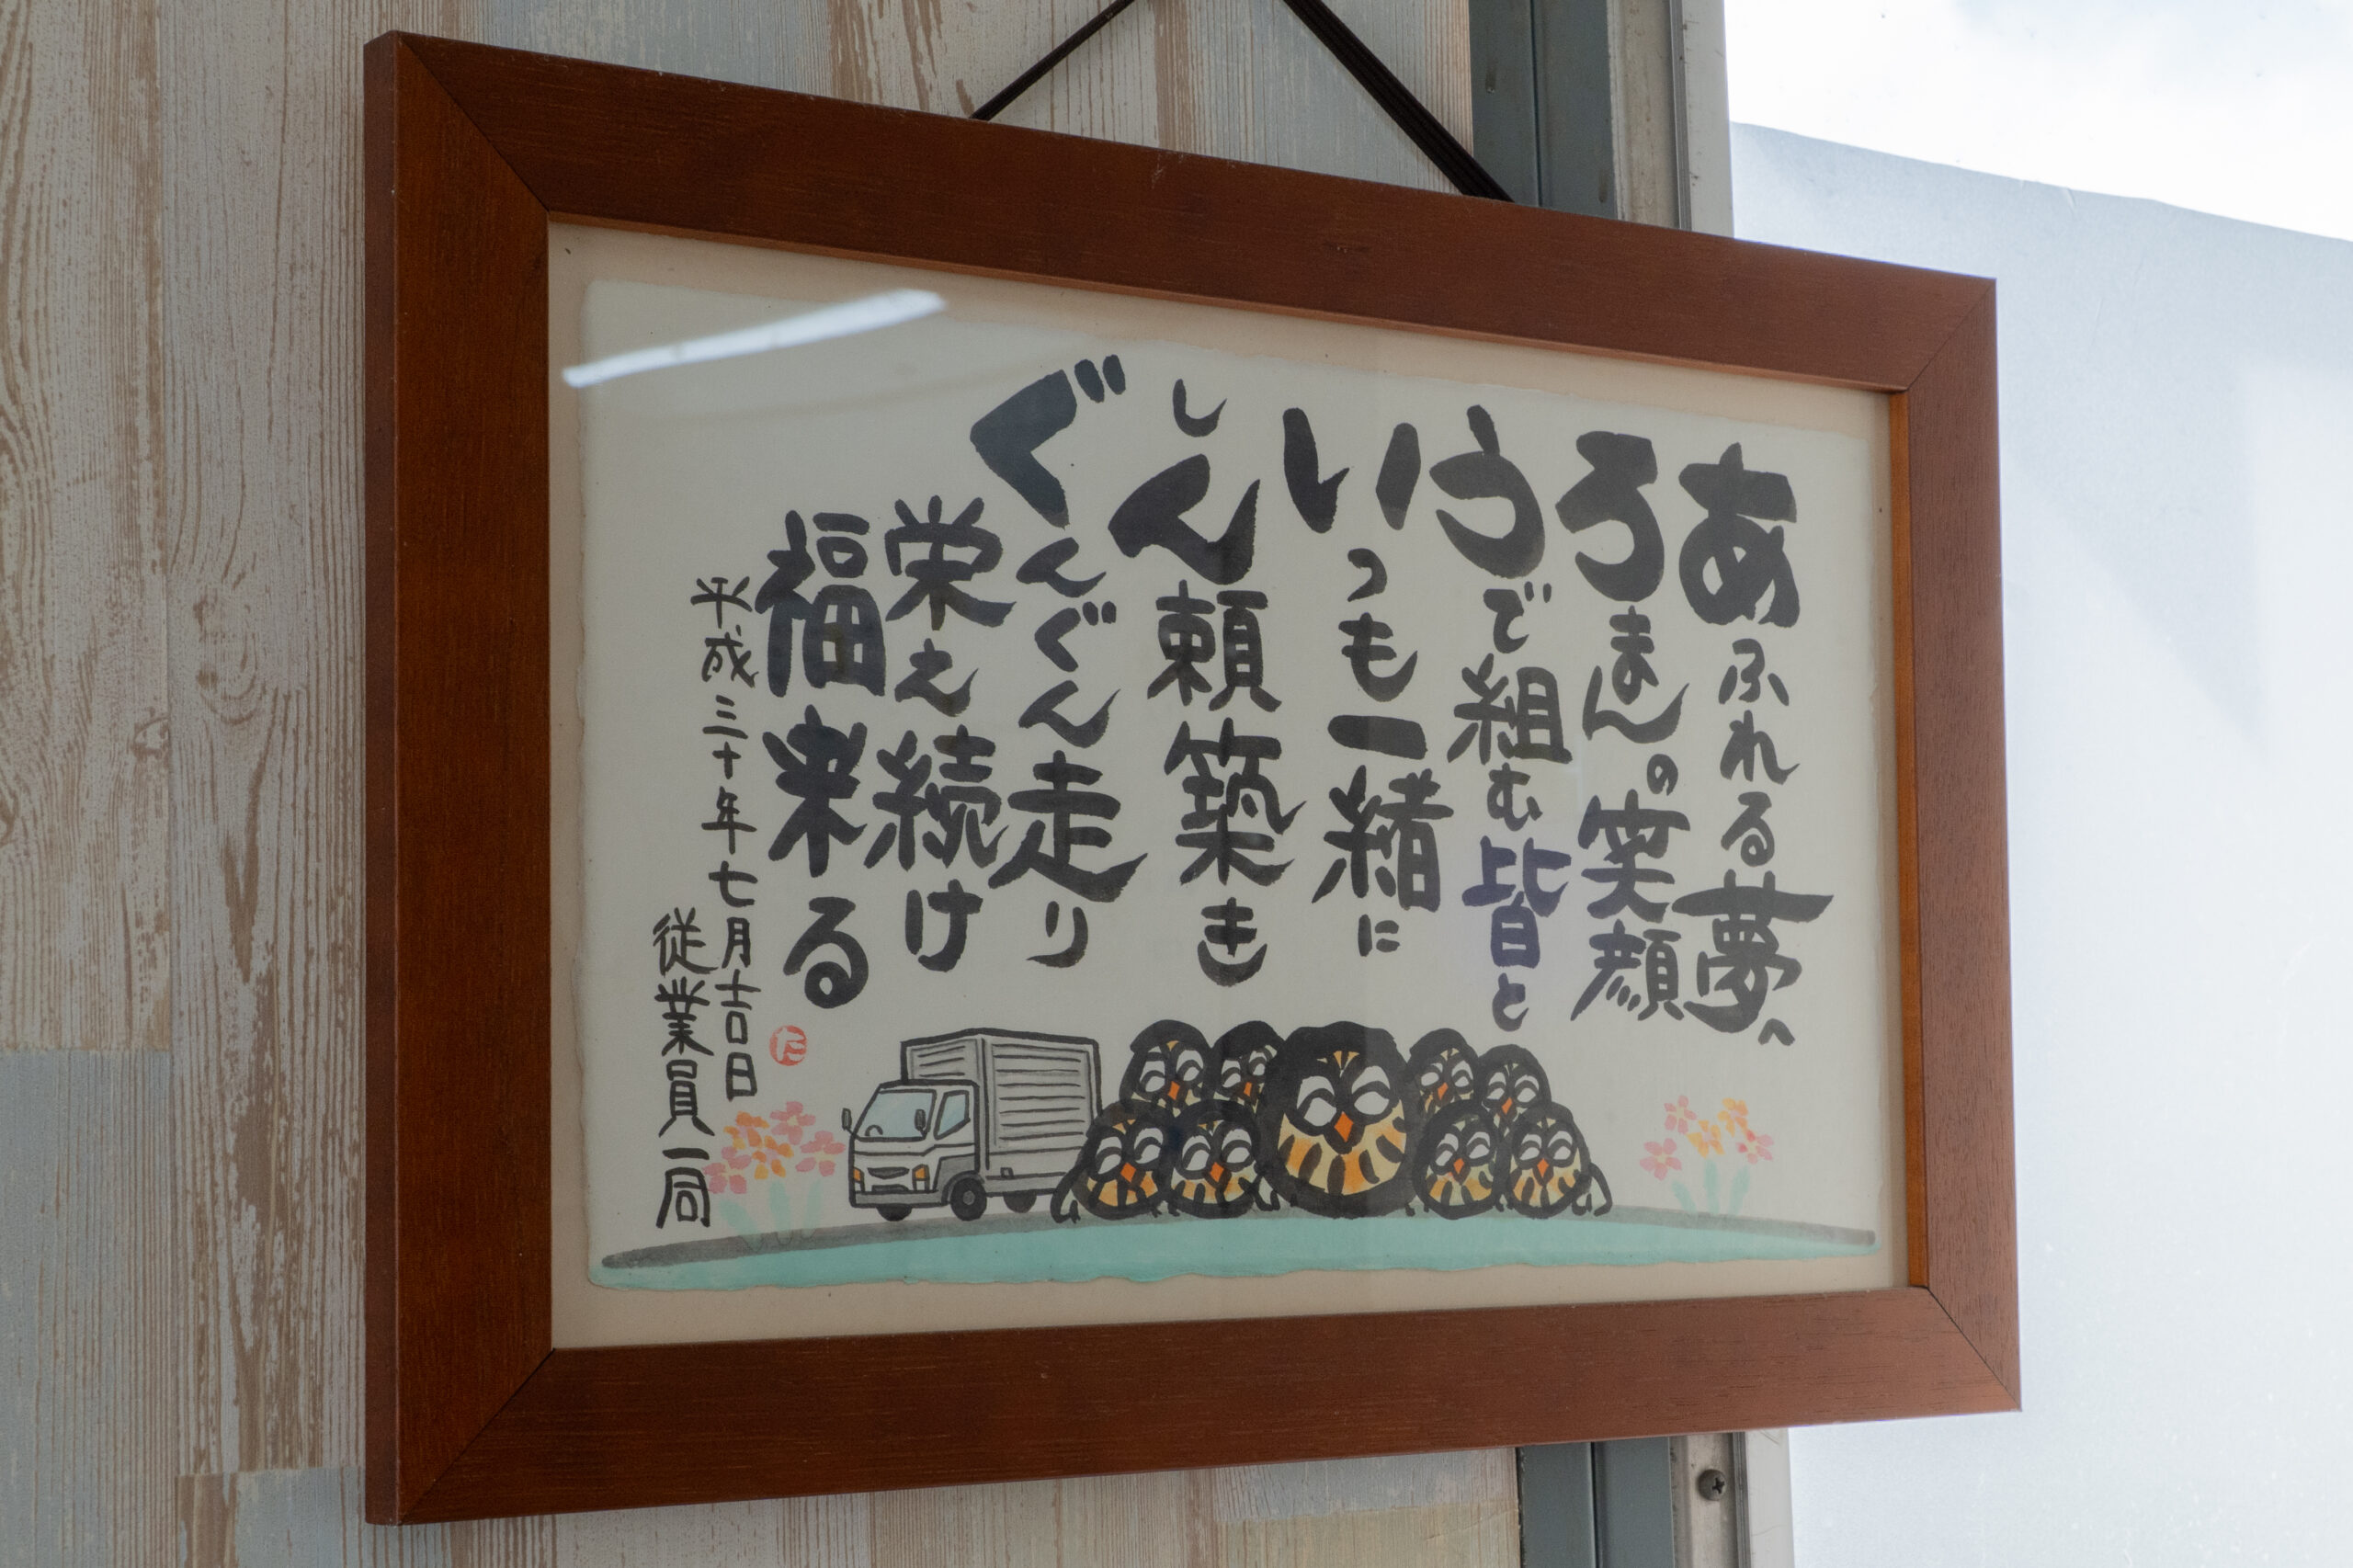 あふれる夢へ
ろまんの笑顔
うで組む皆と
いつも一緒に
しん頼築き
ぐんぐん走り
栄え続け
福来る
平成三十年七月吉日
従業員一同